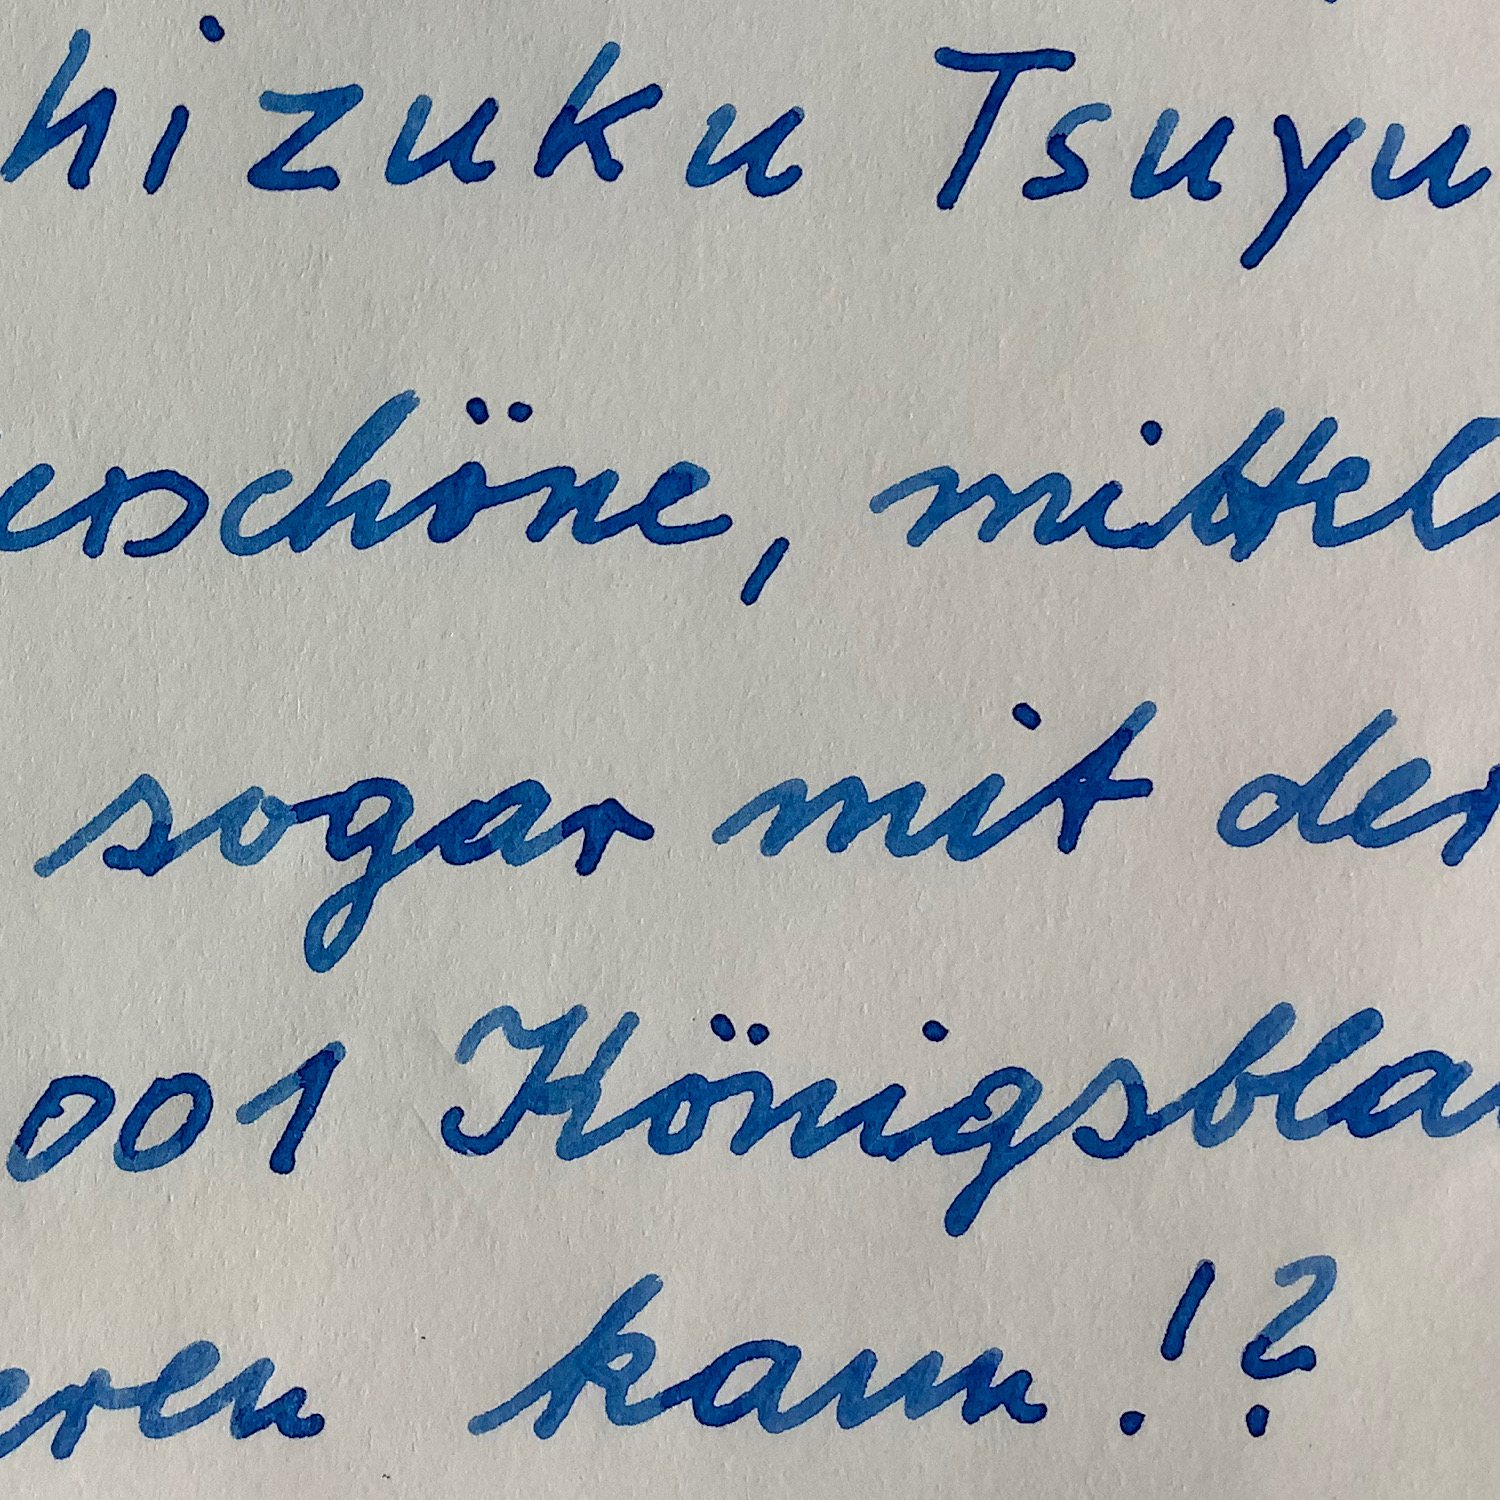 hizuku Tsuyu
erschöne, mittel
sogar mit der
001 Königsblau
eren kann!?